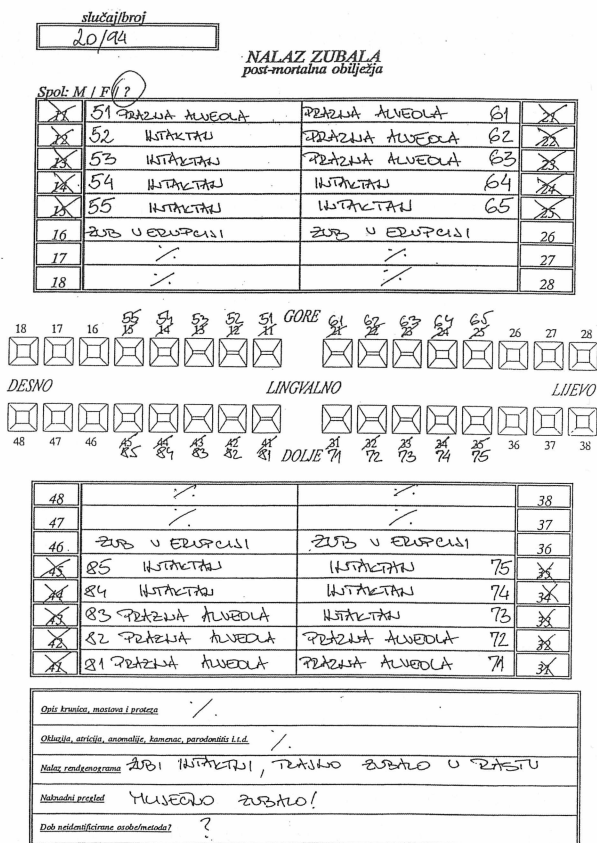 slučaj/broj
20/94
NALAZ ZUBALA
post-mortalna obilježja
Spol: M / F / ?
11 51 PRAZNA ALVEOLA PRAZNA ALVEOLA 61 21
12 52 INTAKTAN PRAZNA ALVEOLA 62 22
13 53 INTAKTAN PRAZNA ALVEOLA 63 23
14 54 INTAKTAN INTAKTAN 64 24
15 55 INTAKTAN INTAKTAN 65 25
16 ZUB U ERUPCIJI ZUB U ERUPCIJI 26
17 ./. ./. 27
18 ./. ./. 28
55 54 53 52 51 GORE 61 62 63 64 65
18 17 16 15 14 13 12 11 21 22 23 24 25 26 27 28
DESNO LINGVALNO LIJEVO
48 47 46 45 44 43 42 41 31 32 33 34 35 36 37 38
85 84 83 82 81 DOLJE 71 72 73 74 75
48 ./. ./. 38
47 ./. ./. 37
46. ZUB U ERUPCIJI ZUB U ERUPCIJI 36
45 85 INTAKTAN INTAKTAN 75 35
44 84 INTAKTAN INTAKTAN 74 34
43 83 PRAZNA ALVEOLA INTAKTAN 73 33
42 82 PRAZNA ALVEOLA PRAZNA ALVEOLA 72 32
41 81 PRAZNA ALVEOLA PRAZNA ALVEOLA 71 31
Opis krunica, mostova i proteza ./.
Okluzija, atricija, anomalije, kamenac, parodontitis i.t.d. ./.
Nalaz rendgenograma ZUBI INTAKTNI, TRAJNO ZUBALO U RASTU
Naknadni pregled MLIJEČNO ZUBALO!
Dob neidentificirane osobe/metoda? ?